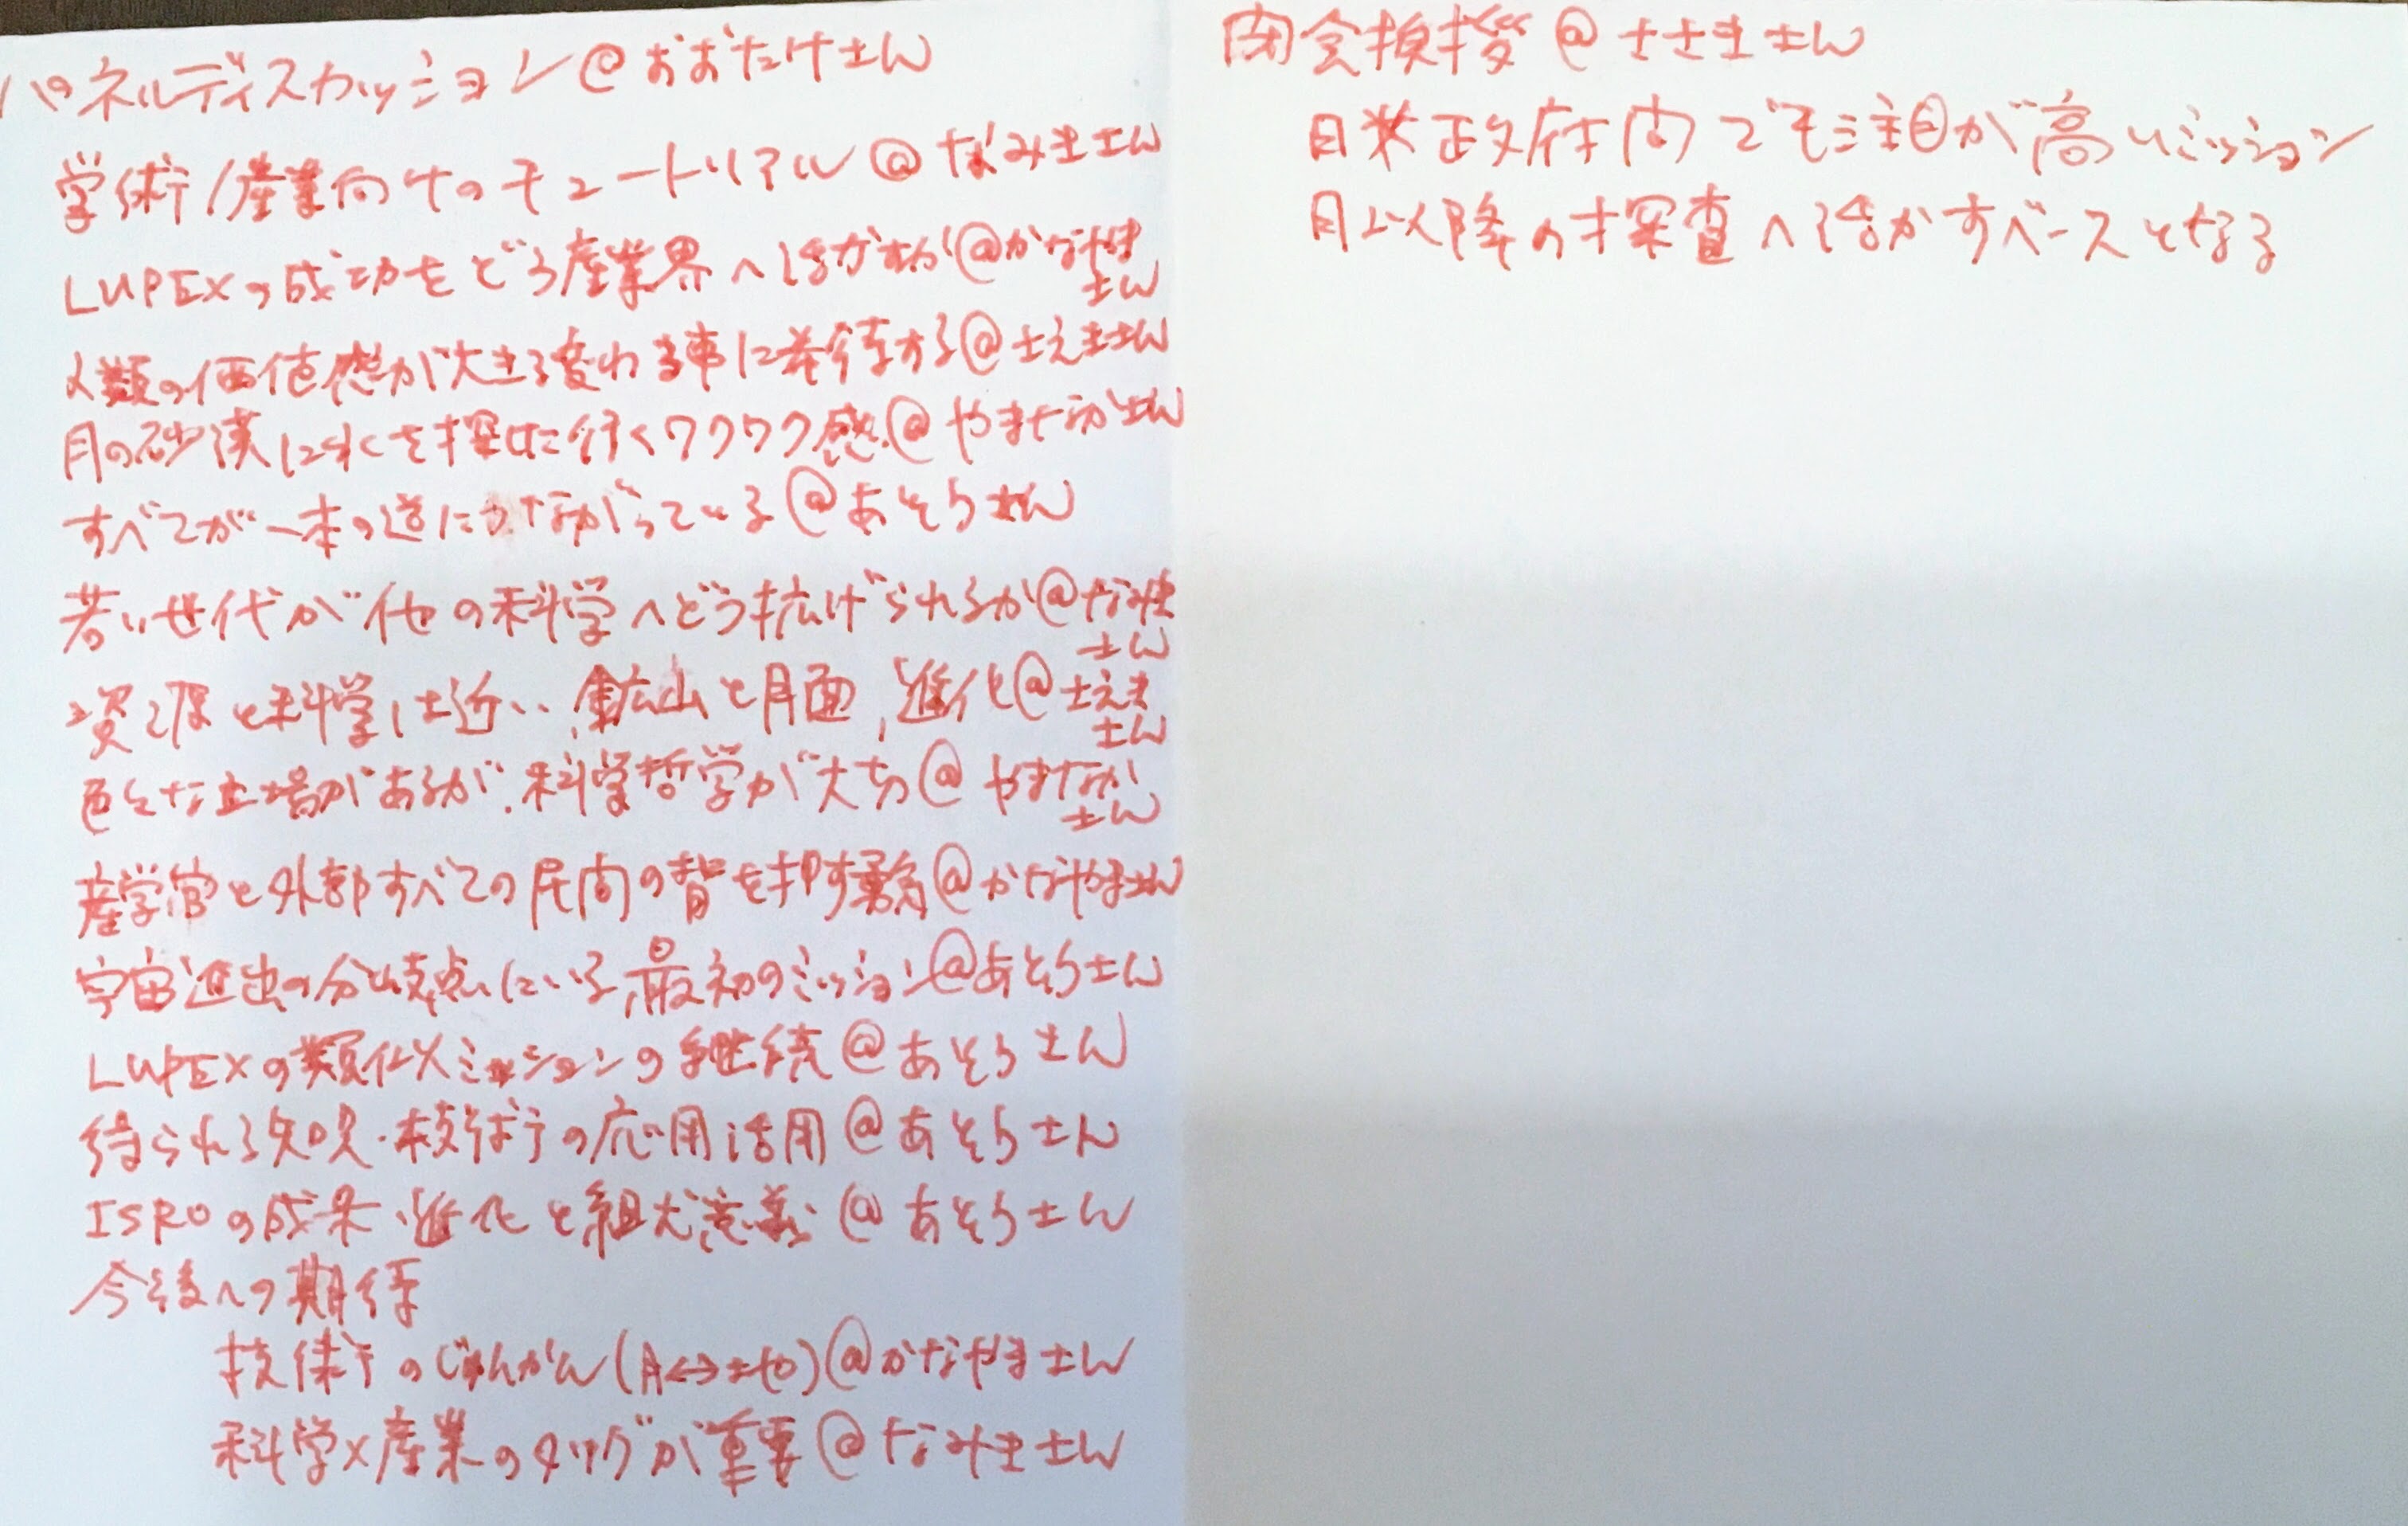 パネルディスカッション@おおたけさん
学術/産業向けのチュートリアル@なみきさん
LUPEXの成功をどう産業界へ活かすか@かなやま
さん
人類の価値感が大きく変わる事に期待する@さえきさん
月の砂漠に水を探しに行くワクワク感@やまなかさん
すべてが一本の道につながっている@あそうさん
若い世代が他の科学へどう拡げられるか@なみき
さん
資源と科学は近い、鉱山と月面、進化@さえき
さん
色々な立場があるが、科学哲学が大切@やまなか
さん
産学官と外部すべての民間の背を押す@かなやまさん
宇宙進出の分岐点にいる最初のミッション@あそうさん
LUPEXの類似ミッションの継続@あそうさん
得られる知見・技術の応用活用@あそうさん
ISROの成果・進化と組む意義@あそうさん
今後への期待
技術のじゅんかん(月↔地)@かなやまさん
科学×産業のタッグが重要@なみきさん
閉会挨拶@ささきさん
日米政府間でも注目が高いミッション
月以降の探査へ活かすベースとなる